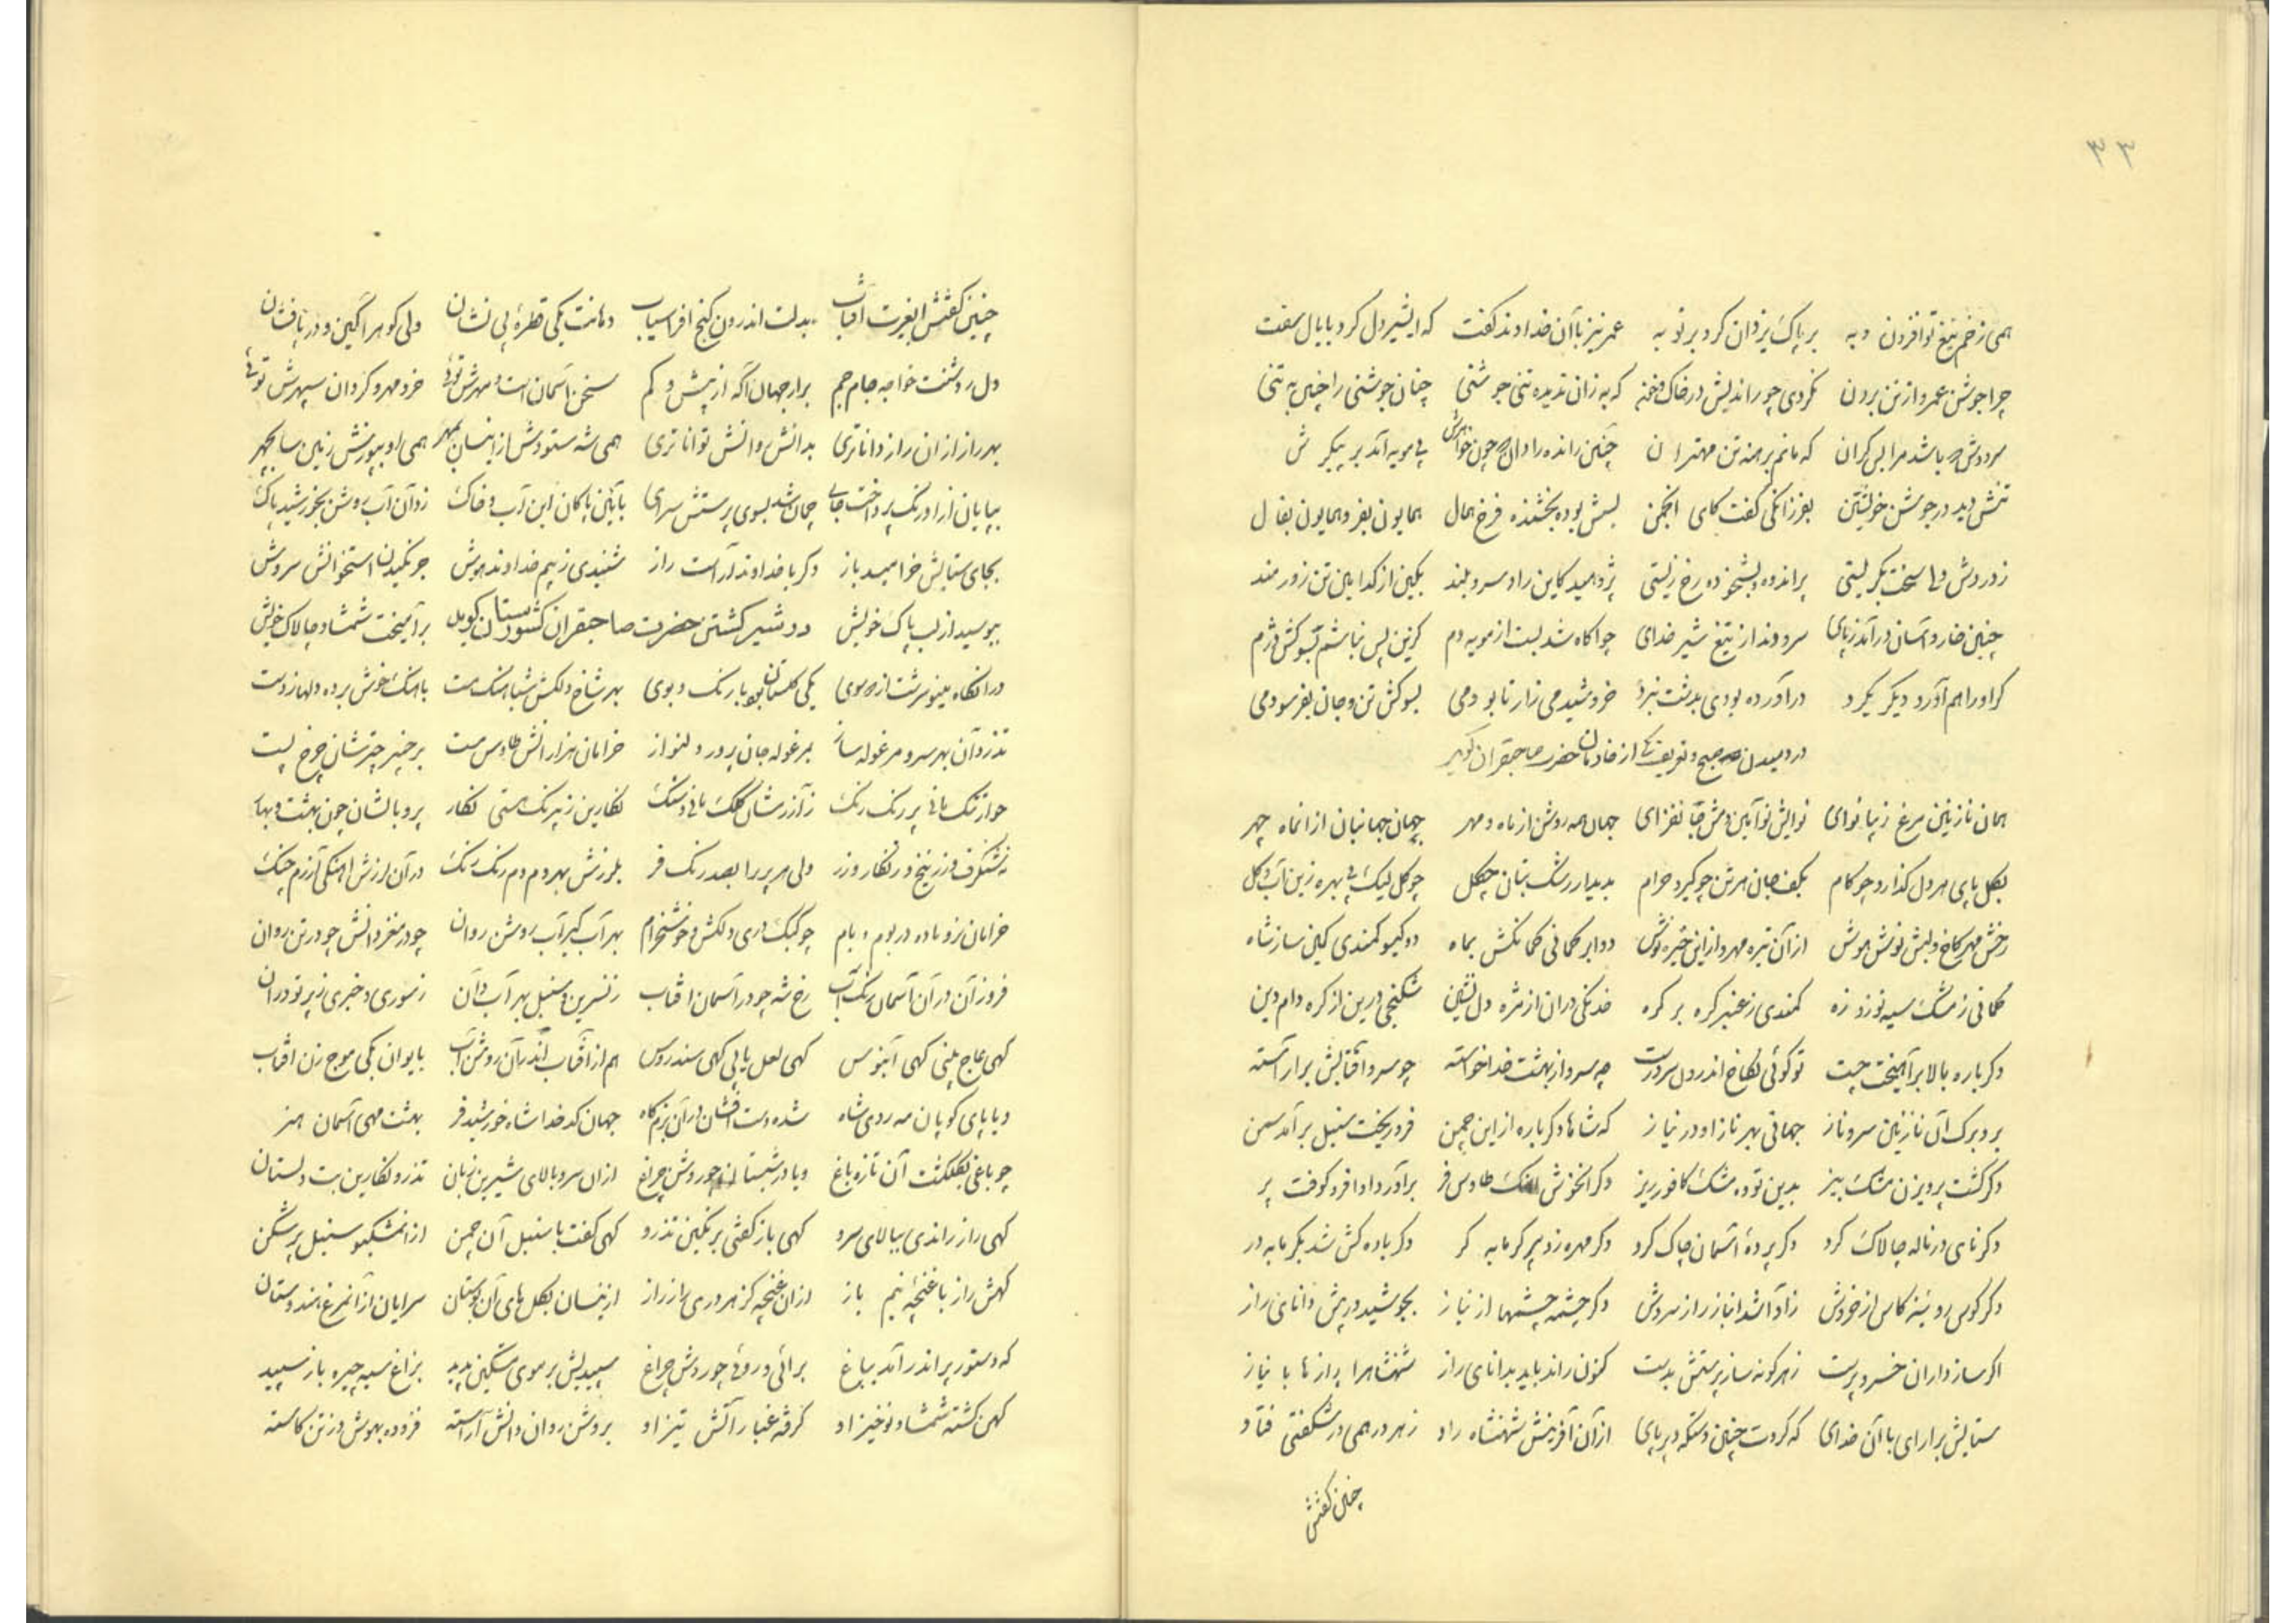 ۳۳
همی زخم تیغ تو افزون و به بر پاک یزدان کرد بر تو به عمر نیز با آن خداوند گفت که ای شیر دل کرد با یال سفت
چرا جوشن عمرو از تن برون نکردی چو راندیش در خاک و خون که به زان ندیده تنی جوشنی چنان جوشنی را چنین به تنی
سروش باشد مرا بس گران که مانم برهنه تن مهتران چنین رانده را دال چون خواهرش پی مویه آمد بر پیکرش
تنش دید در جوشن خویشتن بفرزانگی گفت کای انجمن بسش بوده بخشنده فرخ همال همایون بفر و همایون بفال
ز دردش ولی سخت بگریستی بر اندوه و بشخوده رخ زیستی پژوهید کاین راد سرو بلند بکین از کدامین تن زورمند
چنین خار و آسان درآمد ز پای سرودند از تیغ شیر خدای چو آگاه شد بست از مویه دم کزین پس نباشم بسوکش دژم
گر او را هم آورد دیگر بکرد در آورده بودی بدشت نبرد خروشیدمی زار تا بودمی بسوکش تن و جان بفرسودمی
در دمیدن صبح و تعریف یکی از خادمان حضرت صاحبقران گوید
همان نازنین مرغ زیبا نوای نوایش نو آیین دمش جانفزای جهان همه روشن از ماه و مهر چهان جهانیان از آنماه چهر
بگل پای هر دل گذارد چو گام بکف جان هر تن چو گیرد حرام بدیدار رشک بتان چگل چو گل لیک بی بهره زین آب و گل
رخش مهر کاخ و لبش نوش هوش از آن تیره مهر و از این خیره نوش دو ابرو کمانی کمانکش بماه دو گیسو کمندی کمین ساز شاه
کمانی ز مشک سیه توز و زه کمندی ز عنبر گره بر گره خدنگی در آن از مژه دل نشین شکنجی در این از گره دام دین
دگر باره بالا برآمیخت چست تو گوئی بکاخ اندرون سرو رست چه سرو از بهشت خدا خواسته چو سرو آفتابیش بر آراسته
بر و برگ آن نازنین سرو ناز جهانی بهر ناز او در نیاز که شاها دگر باره از این چمن فرو ریخت سنبل برآمد سمن
دگر گشت پرویزن مشک بیز بدین توده مشک کافور ریز دگر آنخوش آهنگ طاوس فر برآورد آوا فرو کوفت پر
دگر نای در ناله چالاک کرد دگر پرده آسمان چاک کرد دگر مهره زد پیر گرمابه گر دگر باده کش شد بگرمابه در
دگر کوس روئینه کاس از خروش ز آوا شد انباز راز سروش دگر چشمه چشمها از نیاز بجوشید در پیش دانای راز
اگر ساز داران خسرو پرست ز هر گونه ساز پرستش بدست کنون راند باید بدانای راز شهنشاه را رازها با نیاز
ستایش بر آرای با آن خدای که کردت چنین دستگه دیرپای از آن آفرینش شهنشاه راد ز هر در همی در شگفتی فتاد
چنین گفتش
چنین گفتش ای غیرت آفتاب بدلت اندرون گنج افراسیاب دهانت یکی قطره بی نشان ولی گوهر آگین و دریا فشان
دل روشنت خواجه جام جم بر از جهان آگه از بیش و کم سخن آسمان است و مهرش توئی خرد مهر و گردان سپهرش توئی
بهر راز از آن راز داناتری بدانش و دانش تواناتری همی شه ستودش از اینسان بمهر همی او بپوزش زمین سا بچهر
بپایان از اورنگ پرداخت جای چمان شد بسوی پرستش سرای بآیین پاکان این آب و خاک زد آن آب روشن بخورشید پاک
بجای ستایش خرامید باز دگر با خداوند آراست راز شنیدی ز بیم خداوند هوش جرنگیدن استخوانش سروش
ببوسید از لب پاک خویش در شیر کشتن حضرت صاحبقران کشورستان گوید برآمیخت شمشاد چالاک خویش
در آنگاه مینو سرشت از هر سوی یکی گلستان بود با رنگ و بوی بهر شاخ دلکش شباهنگ مست بآهنگ خوش برده دلها ز دست
تذروان بهر سرو مرغوله ساز بمرغوله جان پرور و دلنواز خرامان هزار آتش طاوس مست برخنیر چترشان چرخ پست
چو ارتنگ مانی پر رنگ رنگ ز آزر نشان کلک مانی و سنگ نگارین ز نیرنگ هستی نگار پر و بالشان چون بهشت و بهار
نه شنگرف و زرنیخ و زنگار و زر ولی هر پر را بصد رنگ فر بلرزش بهر دم دم رنگ رنگ در آن لرزش آهنگی آزرم چنگ
خرامان نر و ماده در بوم و بام چو کبک دری دلکش و خوشخرام بهر آبگیر آب روشن روان چو در مغز دانش چو در تن روان
فروزان در آن آسمان رنگ آب رخ شه چو در آسمان آفتاب ز نسرین و سنبل بهر آب دان ز سوری و خیری ز پرتو در آن
گهی عاج بینی گهی آبنوس گهی لعل یابی گهی سندروس هم از آفتاب اندر آن روشن آب بایوان یکی موج زن آفتاب
و یا پای کوبان مه روی شاه شده دست افشان در آن بزمگاه جهان کدخدا شاه خورشید فر بهشت مهی آسمان هنر
چو باغی بگلگشت آن تازه باغ و یا در شبستان چو روشن چراغ از آن سرو بالای شیرین زبان تذرو نگارین بت دلستان
گهی راز راندی ببالای سرو گهی باز گفتی برنگین تذرو گهی گفت با سنبل آن چمن از آن مشکبو سنبل پر شکن
گهش راز با غنچه نیم باز از آن غنچه کز هر دری راند راز از اینسان بگل های آن بوستان سرایان از آن مرغ هندوستان
که دستور پیر اندر آمد بباغ برائی و روئی چو روشن چراغ سپیدیش بر موی مشکین پدید بزاغ سیه چیره باز سپید
کهن گشته شمشاد نوخیز او گرفته غبار آتش تیز او بروشن روان دانش آراسته فزوده بهوش و ز تن کاسته